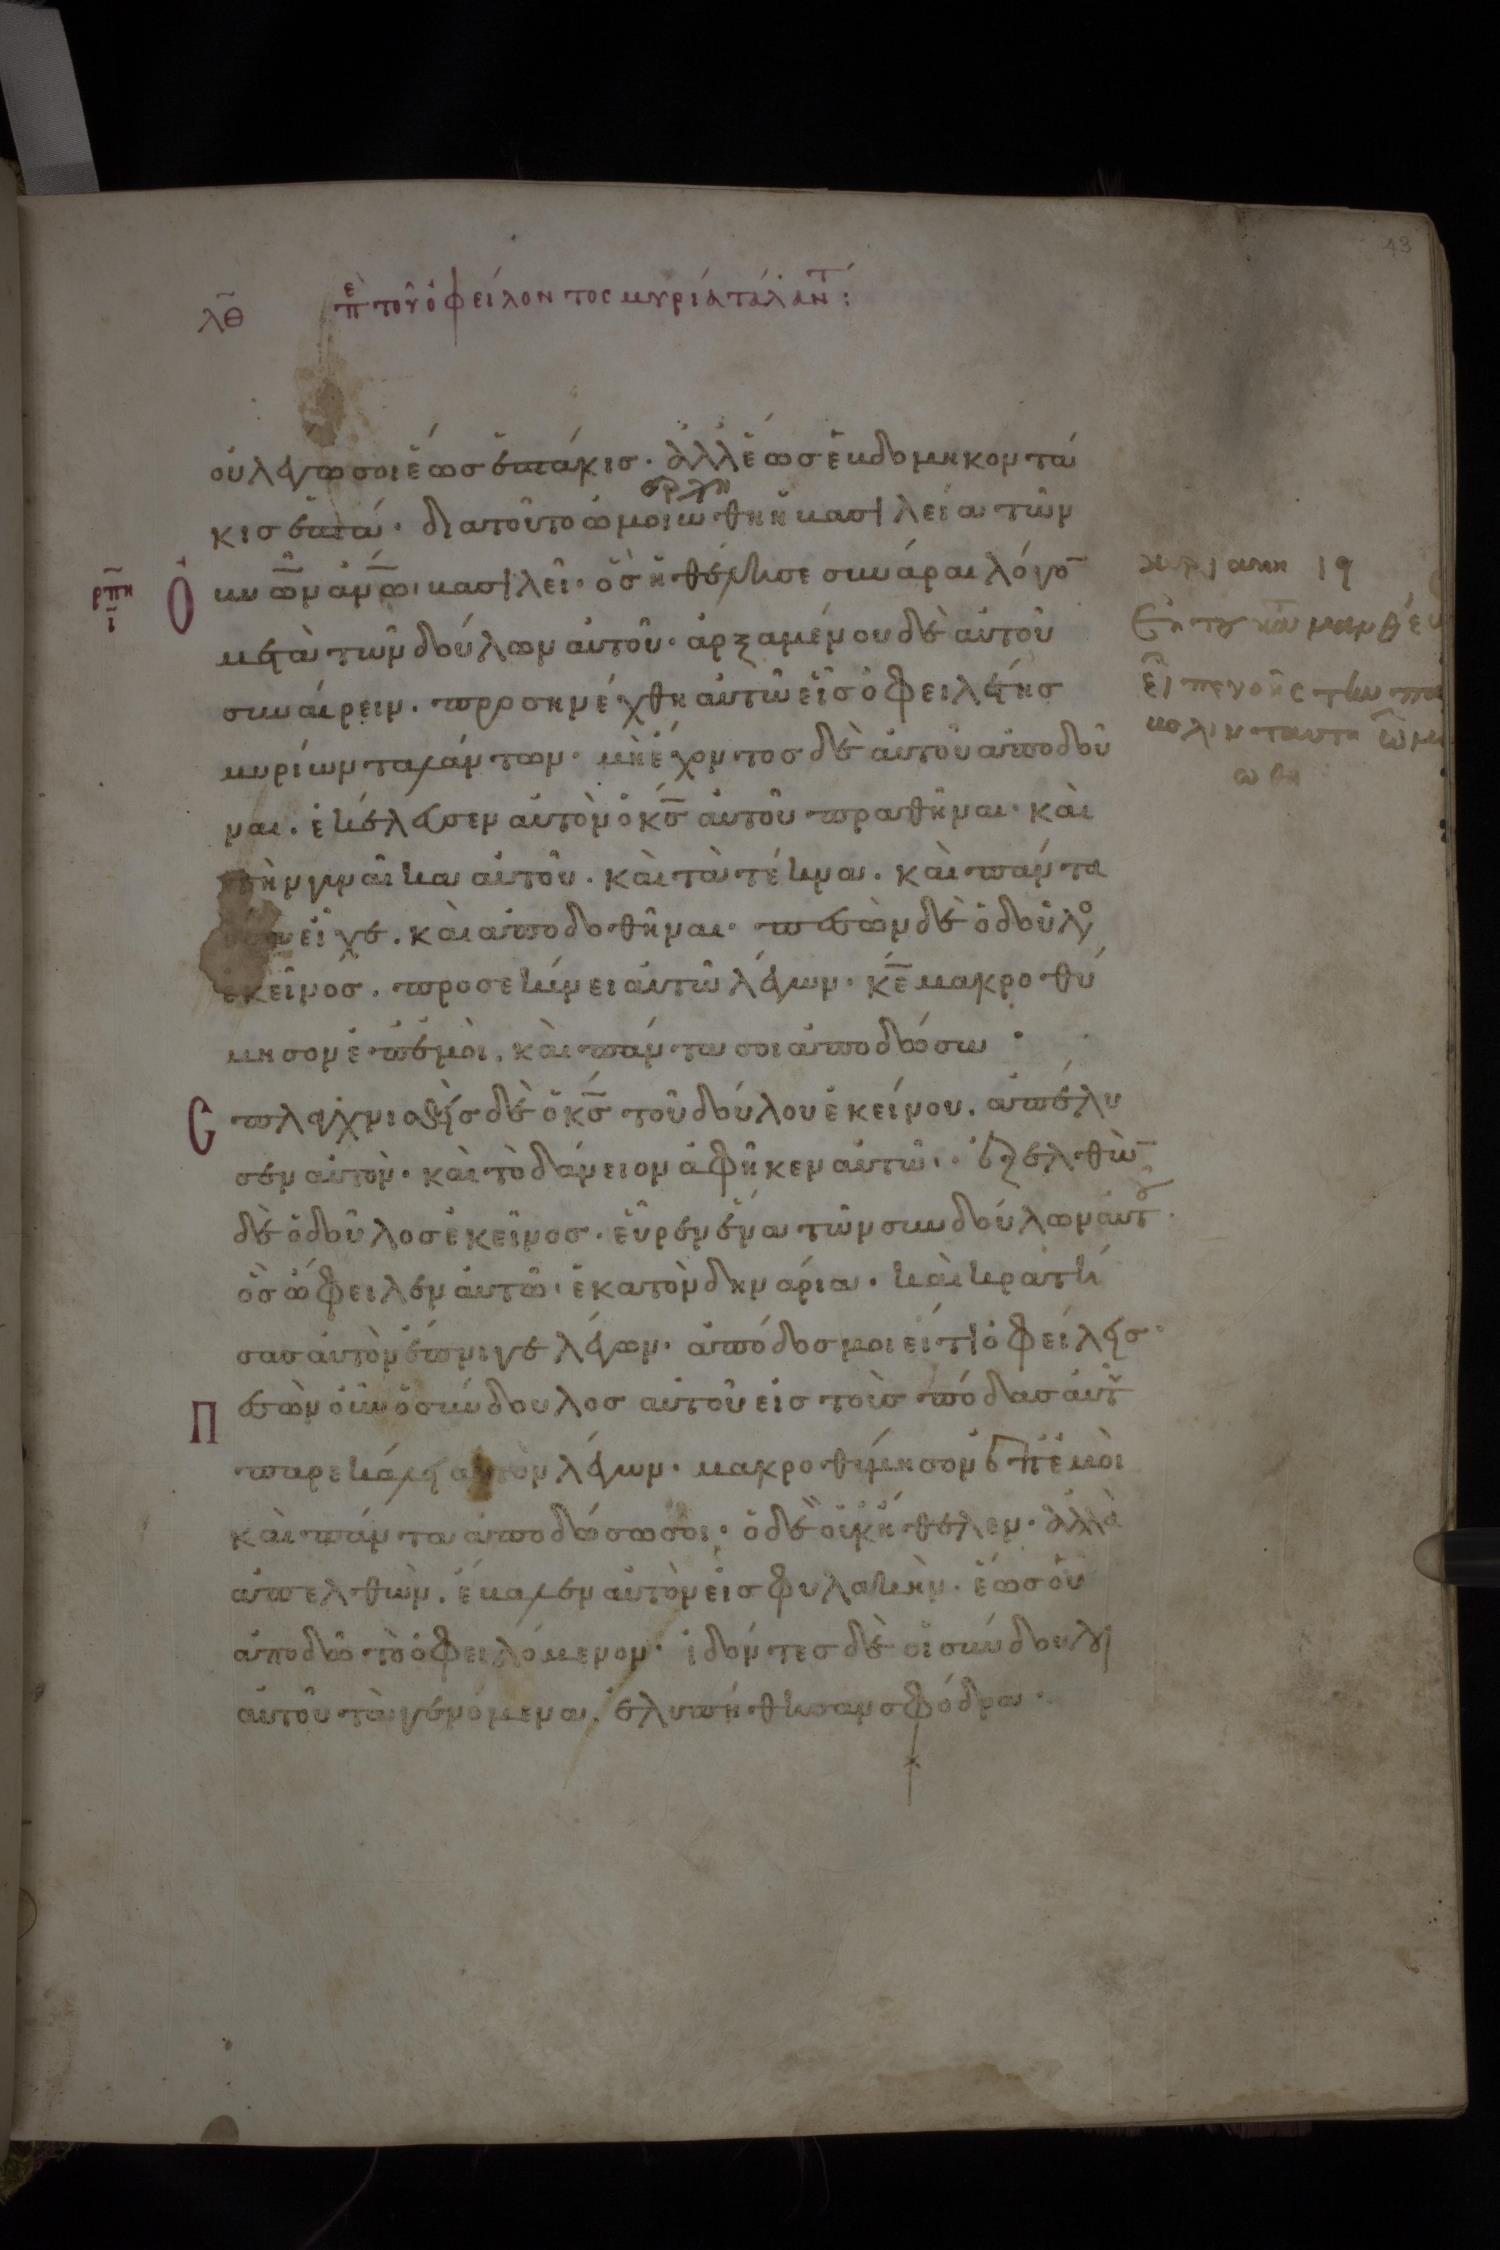 43
λθ περὶ τοῦ ὀφείλοντος μύρια τάλαντ:
οὐ λέγω σοι ἕως ἑπτάκισ· ἀλλ' ἕωσ ἑβδομηκοντά
αρχη
κισ ἑπτά· διατοῦτο ὡμοιώθη ἡ βασιλεία τῶν
ρπη
ι
οὐνῶν ἀνῶ βασιλεῖ· ὃσ ἠθέλησε συνάραι λόγο̄
μετὰ τῶν δούλων αὐτοῦ· ἀρξαμένου δὲ αὐτοῦ
συναίρειν. προσηνέχθη αὐτῶ εἷσ ὀφειλέτησ
μυρίων ταλάντων· μὴ ἔχοντοσ δὲ αὐτοῦ ἀποδοῦ
ναι. ἐκέλευσεν αὐτὸν ὁ κς αὐτοῦ πραθῆναι· καὶ
τὴν γυναῖκα αὐτοῦ. καὶ τὰ τέκνα. καὶ πάντα
ὅσα εἶχε. καὶ ἀποδοθῆναι· πεσὼν δὲ ὁ δοῦλο
ἐκεῖνοσ. προσεκύνει αὐτῶ λέγων· κε μακροθύ
μησον ἐπ' ἐμοὶ. καὶ πάντα σοι ἀποδώσω·
Σπλαγχνισθεὶσ δὲ ὁ κς τοῦ δούλου ἐκείνου. ἀπέλυ
σεν αὐτὸν· καὶ τὸ δάνειον ἀφῆκεν αὐτῶ· ἐξελθὼ̄
δὲ ὁ δοῦλοσ ἐκεῖνοσ. εὗρεν ἕνα τῶν συνδούλων αὐτοῦ·
ὃσ ὤφειλεν αὐτῶ· ἑκατὸν δηνάρια. καὶ κρατή
σασ αὐτὸν ἔπνιγε λέγων· ἀπόδοσ μοι εἴτι ὀφείλεισ·
Πεσὼν οὖν ὁ σύνδουλοσ αὐτοῦ εἰσ τοὺσ πόδασ αὐτοῦ
παρεκάλει αὐτὸν λέγων· μακροθύμησον ἐπ' ἐμοὶ
καὶ πάντα ἀποδώσω σοι· ὁ δὲ οὐκ ἤθελεν· ἀλλὰ
ἀπελθὼν. ἔβαλεν αὐτὸν εἰσ φυλακὴν. ἕωσ οὗ
ἀποδῶ τὸ ὀφειλόμενον· ἰδόντεσ δὲ οἱ σύνδουλοι
αὐτοῦ τὰ γενόμενα. ἐλυπήθησαν σφόδρα·